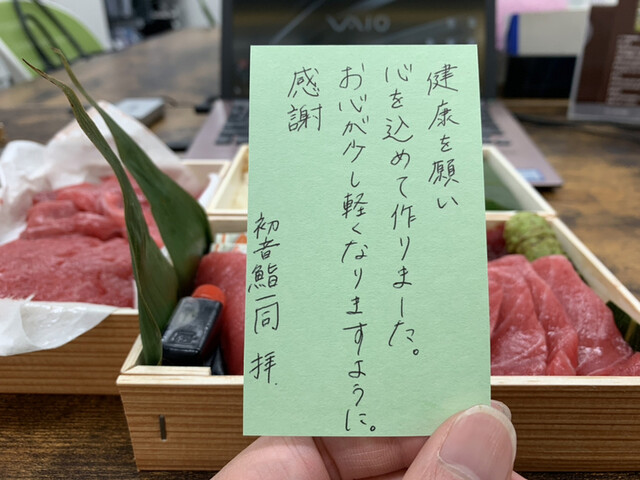 VAIO
健康を願い
心を込めて作りました。
お心が少し軽くなりますように。
感謝
初音鮨一同 拝.